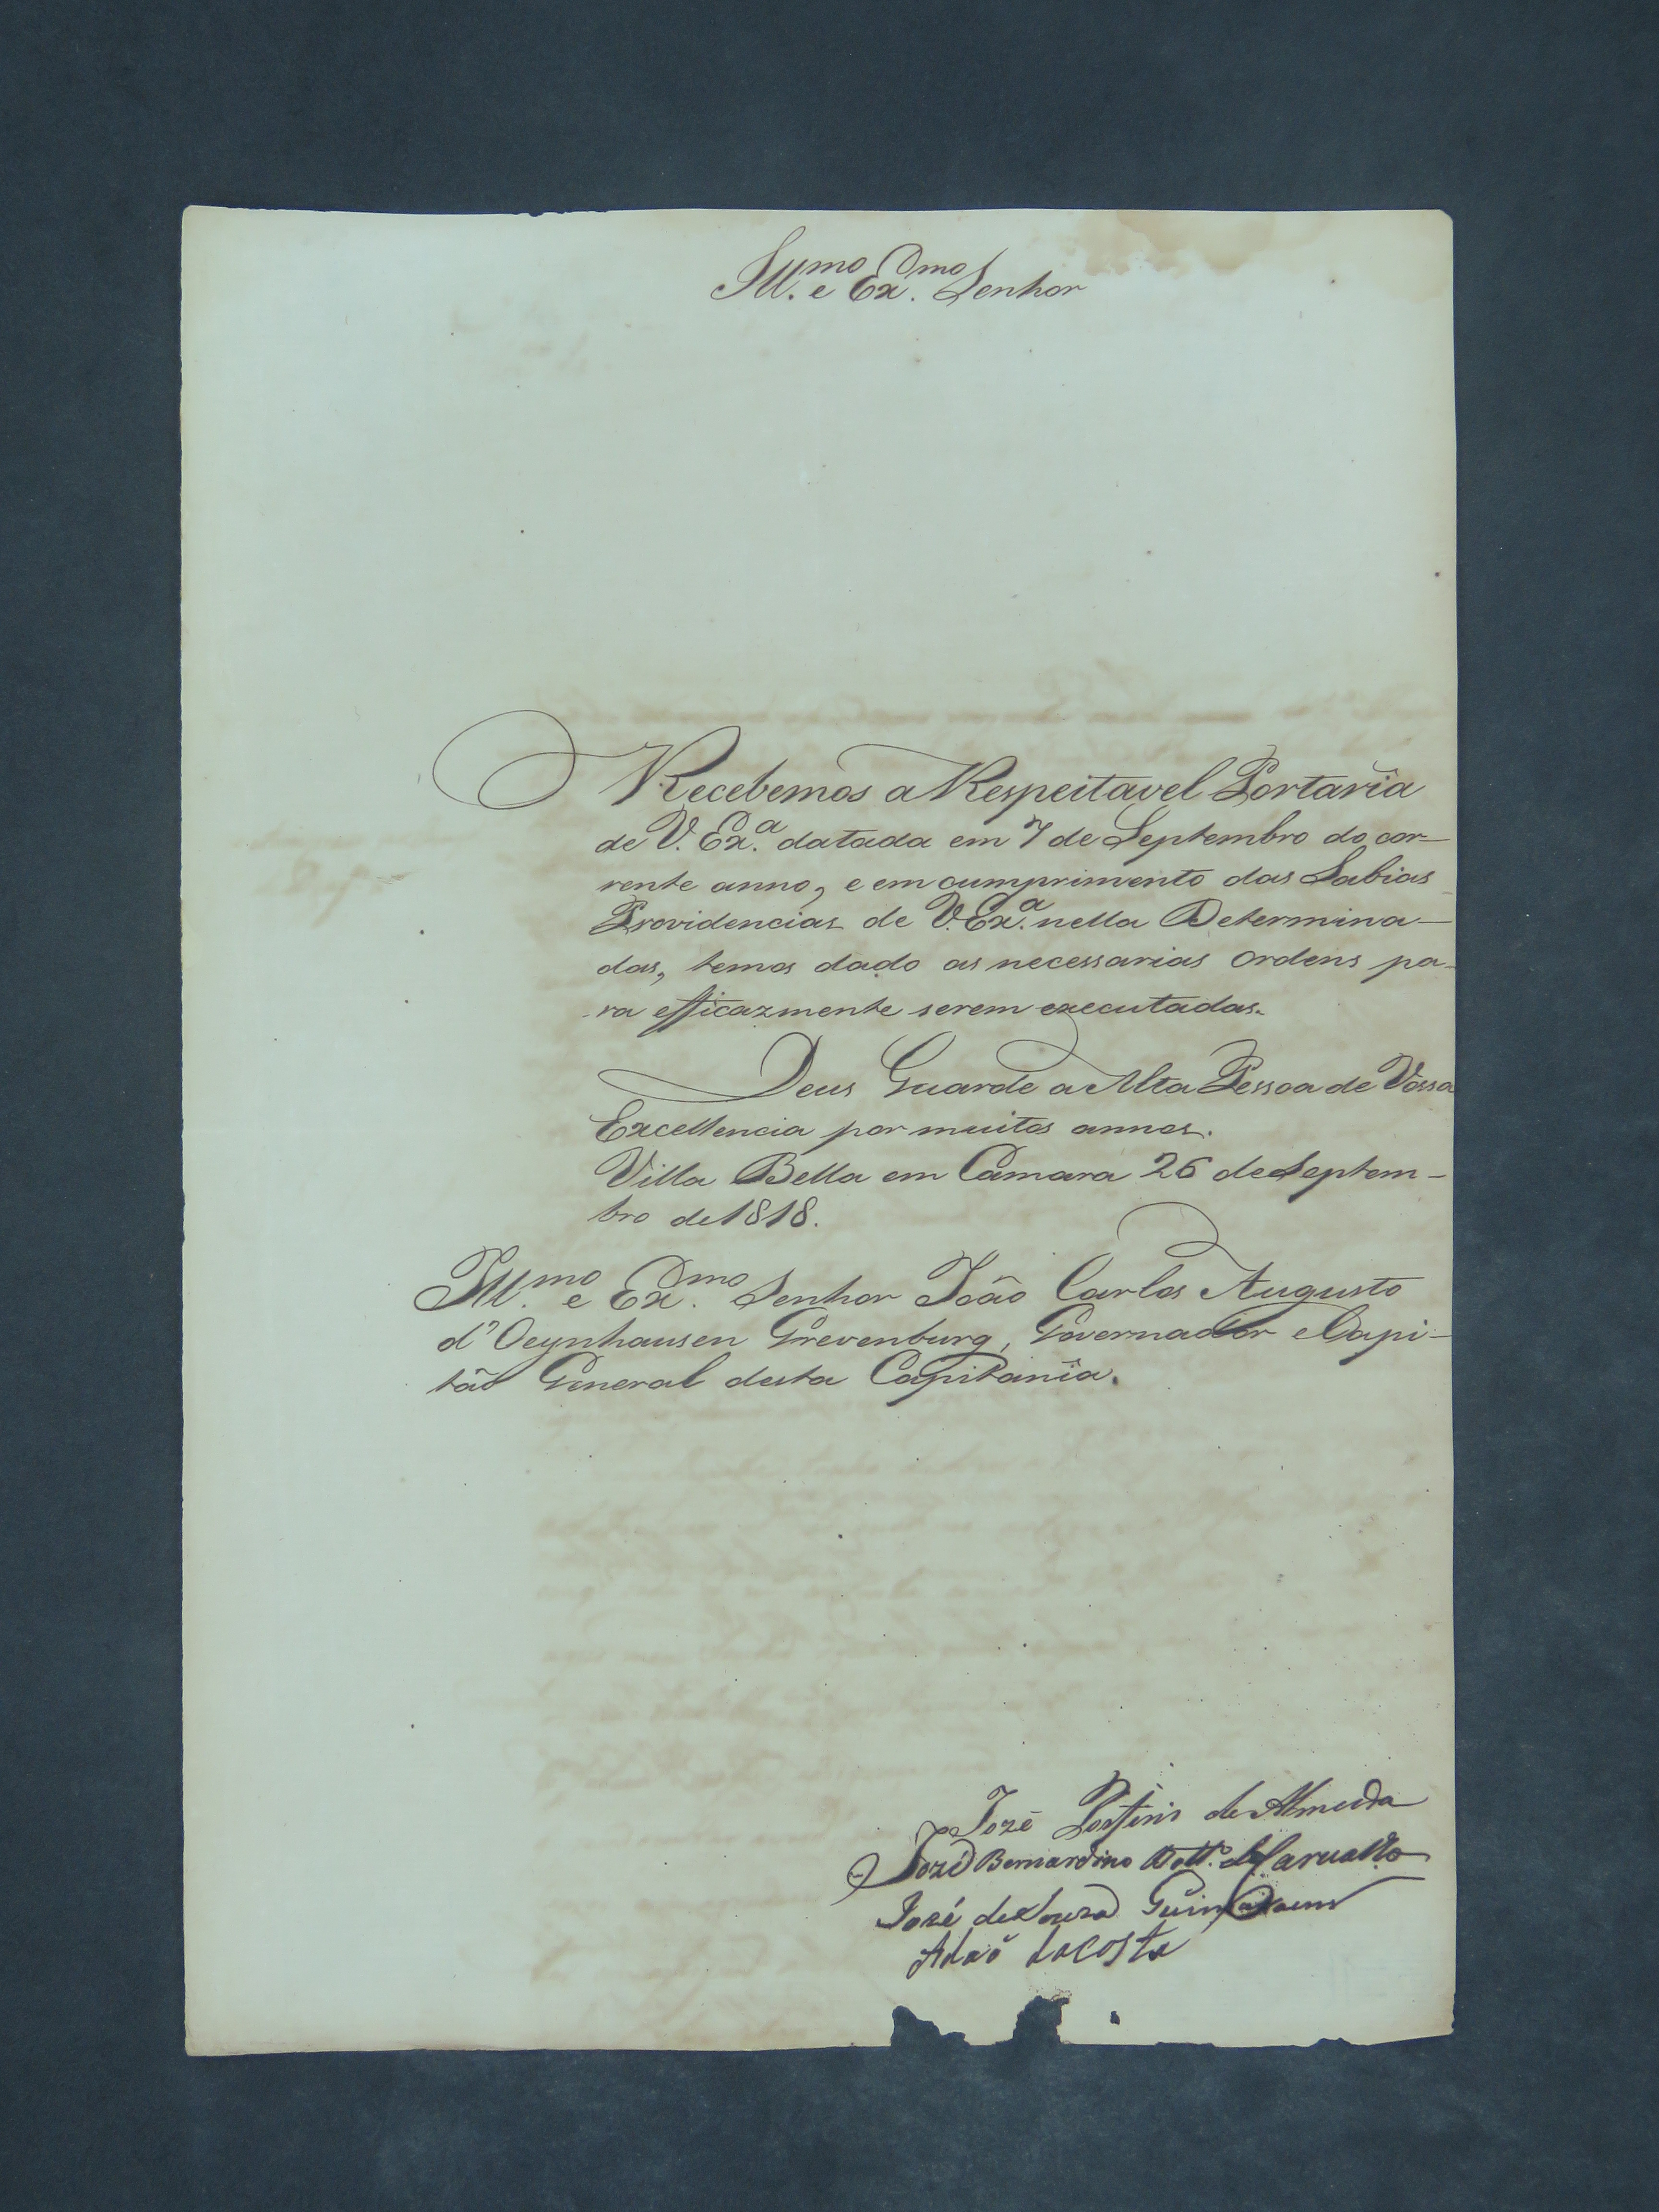 Ill.mo e Ex.mo Senhor
Recebemos a Respeitavel Portaria
de V. Ex.a datada em 7 de Septembro do cor-
rente anno, e em cumprimento das Sabias
Providencias de V. Ex.a nella Determina-
das, temos dado as necessarias ordens pa-
ra efficazmente serem executadas.
Deus Guarde a Alta Pessoa de Vossa
Excellencia por muitos annos.
Villa Bella em Camara 26 de Septem-
bro de 1818.
Ill.mo e Ex.mo Senhor João Carlos Augusto
d'Oeynhausen Grevenburg, Governador e Capi-
tão General desta Capitania.
Jozé de Almeida
Jozé Bernardino de Carvalho
José de Souza Guimaraens
Adaõ dacosta